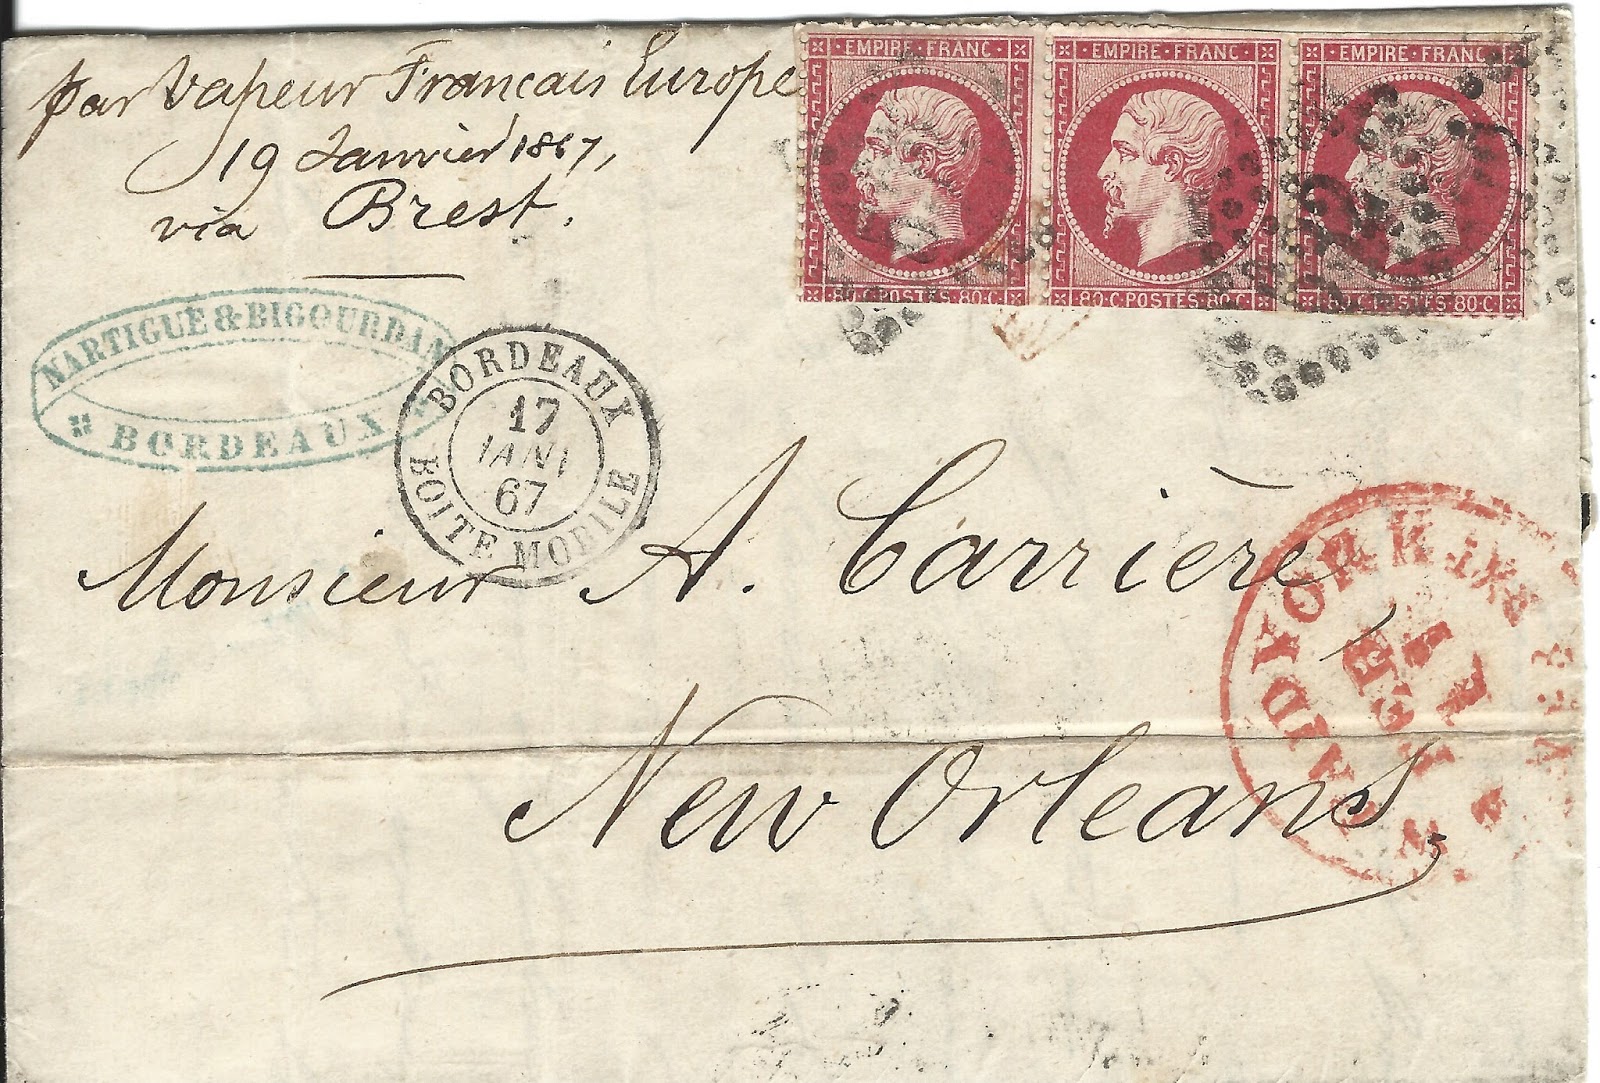 par Vapeur Français Europe
19 Janvier 1867,
via Brest.
EMPIRE·FRANC
80·C·POSTES·80·C
EMPIRE·FRANC
80·C·POSTES·80·C
EMPIRE·FRANC
80·C·POSTES·80·C
NARTIGUE & BIGOURDAN
BORDEAUX
BORDEAUX
17
JANV
67
BOITE MOBILE
Monsieur A. Carrière,
New Orleans,
NEW YORK
PAID